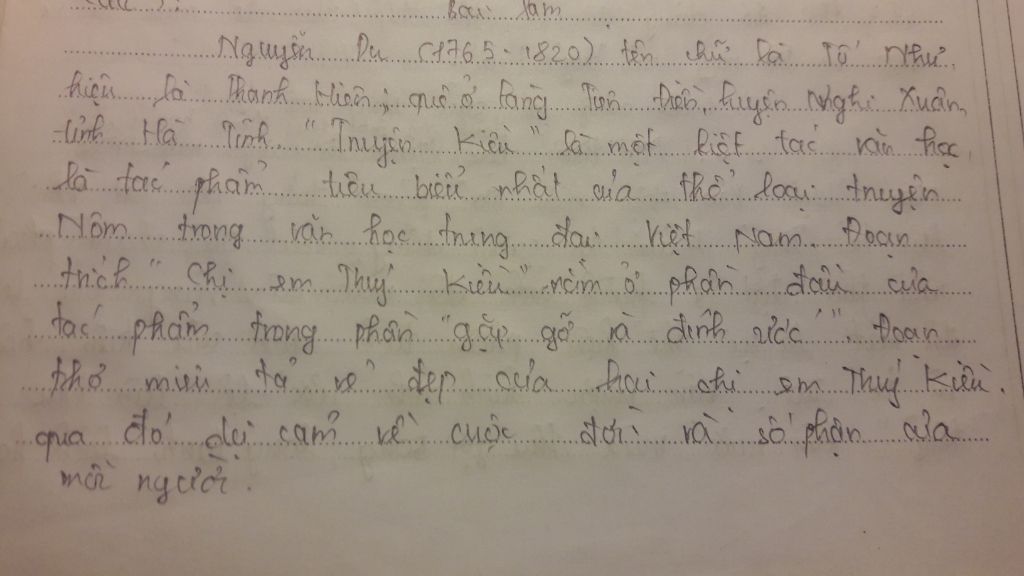 Bài làm
Nguyễn Du (1765-1820) tên chữ là Tố Như,
hiệu là Thanh Hiên; quê ở làng Tiên Điền, huyện Nghi Xuân,
tỉnh Hà Tĩnh. "Truyện Kiều" là một kiệt tác văn học,
là tác phẩm tiêu biểu nhất của thể loại truyện
Nôm trong văn học trung đại Việt Nam. Đoạn
trích "Chị em Thuý Kiều" nằm ở phần đầu của
tác phẩm trong phần "gặp gỡ và đính ước". Đoạn
thơ miêu tả vẻ đẹp của hai chị em Thuý Kiều.
qua đó dự cảm về cuộc đời và số phận của
mỗi người.